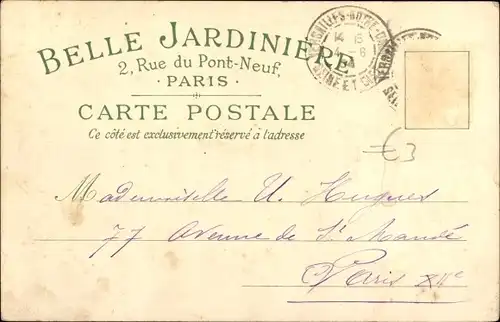 BELLE JARDINIERE
2, Rue du Pont-Neuf,
PARIS
CARTE POSTALE
Ce côté est exclusivement réservé à l'adresse
14 15
€3
Mademoiselle U. Hugues
77 Avenue de St Mandé
Paris XIIe